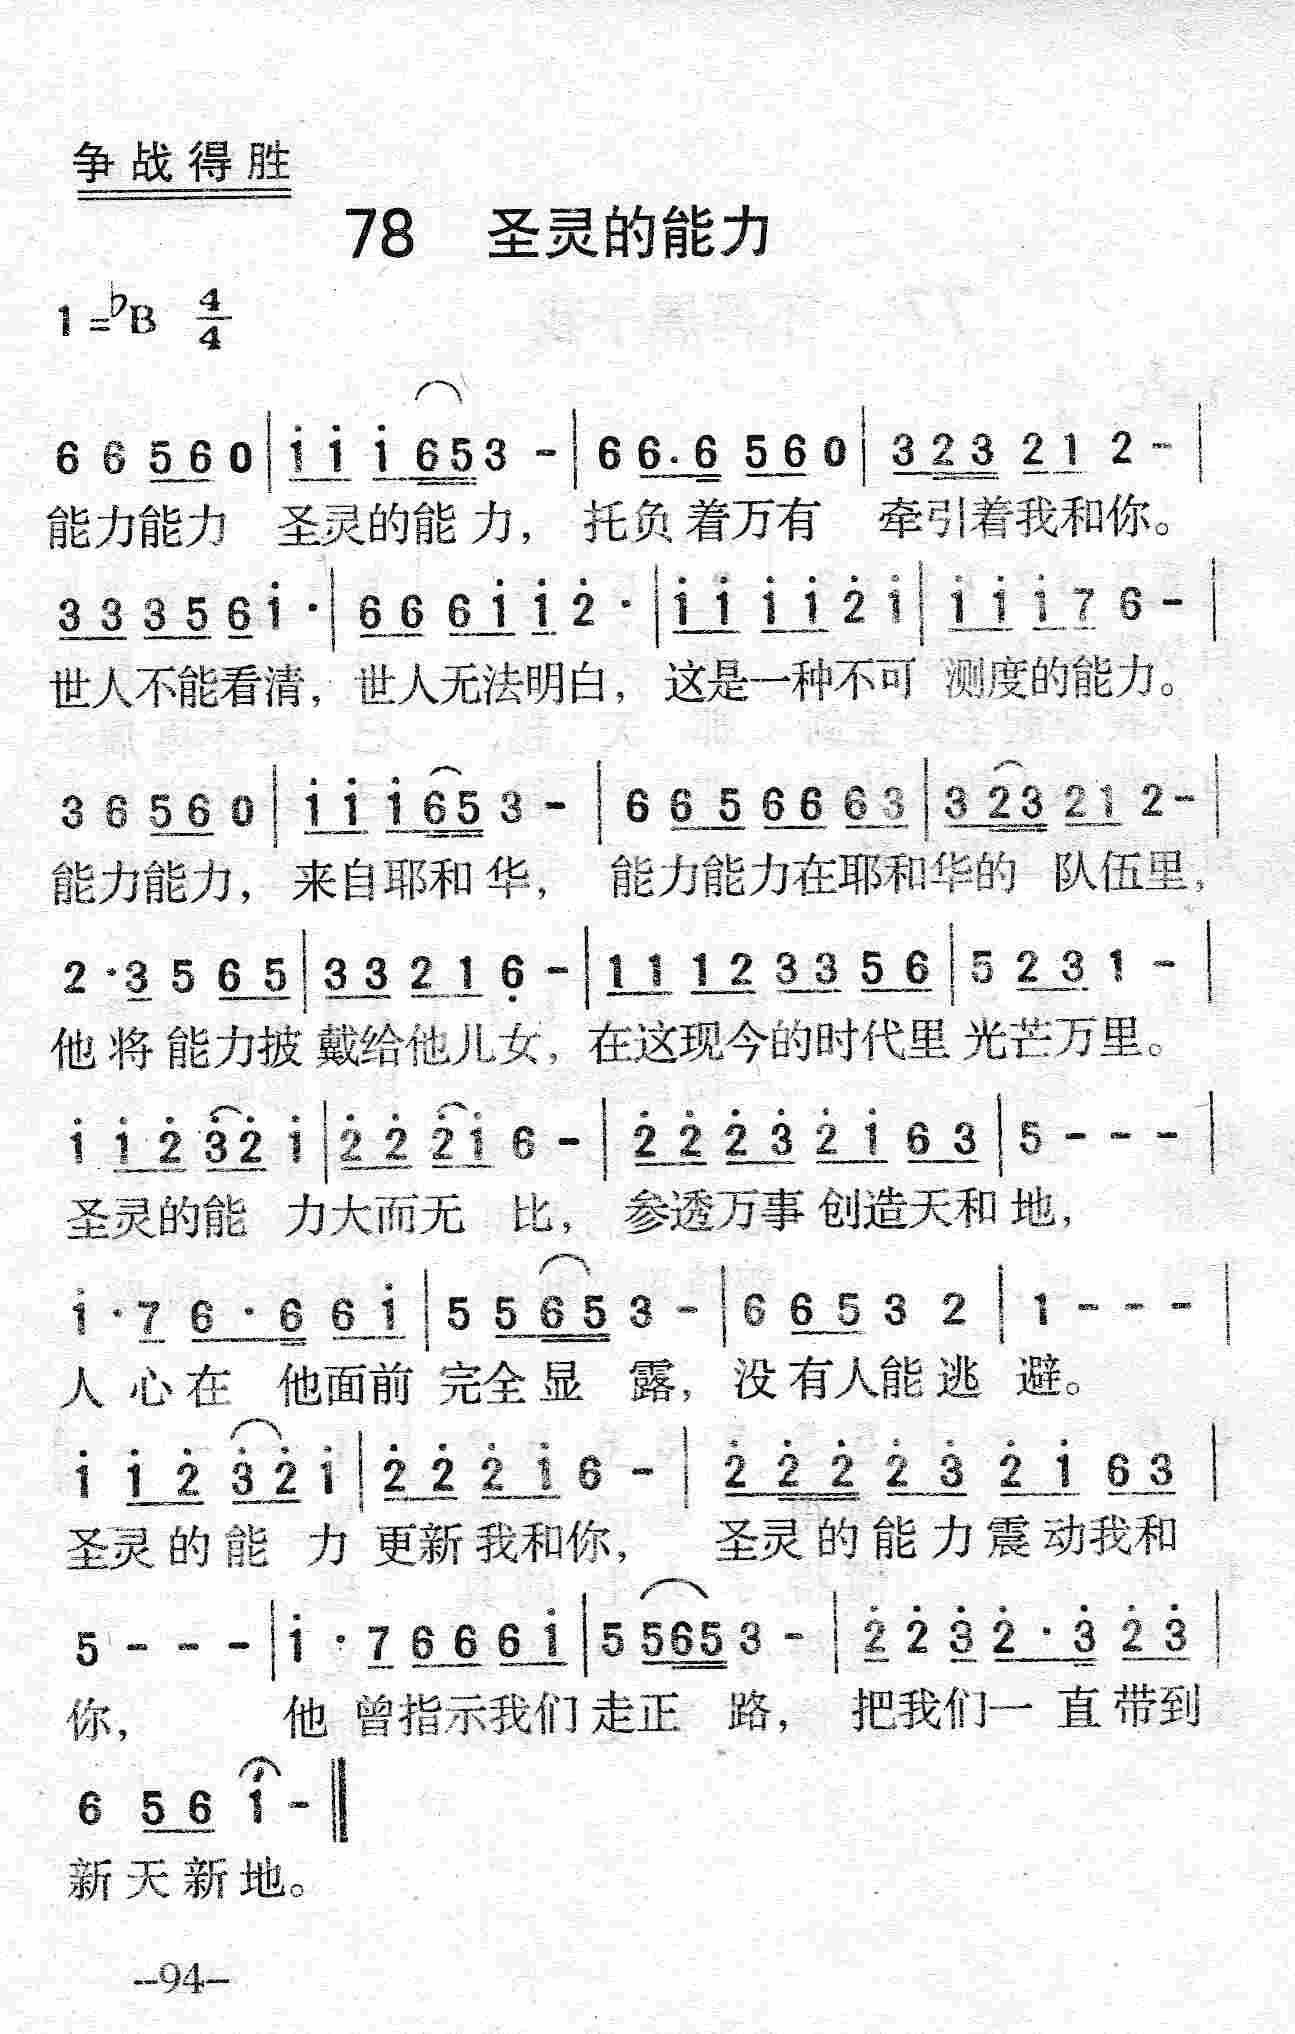 争战得胜
78 圣灵的能力
1=♭B 4/4
6 6 5 6 0 | i i i 6 5 3 - | 6 6. 6 5 6 0 | 3 2 3 2 1 2 - |
能力能力 圣灵的能力, 托负着万有 牵引着我和你。
3 3 3 5 6 i · | 6 6 6 i i 2̇ · | i i i i 2̇ i | i i i 7 6 - |
世人不能看清, 世人无法明白, 这是一种不可 测度的能力。
3 6 5 6 0 | i i i 6 5 3 - | 6 6 5 6 6 6 3 | 3 2 3 2 1 2 - |
能力能力, 来自耶和华, 能力能力在耶和华的 队伍里,
2 · 3 5 6 5 | 3 3 2 1 6̣ - | 1 1 1 2 3 3 5 6 | 5 2 3 1 - |
他将能力披 戴给他儿女, 在这现今的时代里 光芒万里。
i i 2̇ 3̇ 2̇ i | 2̇ 2̇ 2̇ i 6 - | 2̇ 2̇ 2̇ 3̇ 2̇ i 6 3 | 5 - - - |
圣灵的能 力大而无 比, 参透万事 创造天和地,
i · 7 6 · 6 6 i | 5 5 6 5 3 - | 6 6 5 3 2 | 1 - - - |
人心在 他面前 完全显 露, 没有人能逃 避。
i i 2̇ 3̇ 2̇ i | 2̇ 2̇ 2̇ i 6 - | 2̇ 2̇ 2̇ 2̇ 3̇ 2̇ i 6 3 |
圣灵的能 力 更新我和你, 圣灵的能力震动我和
5 - - - | i · 7 6 6 6 i | 5 5 6 5 3 - | 2̇ 2̇ 3̇ 2̇ · 3̇ 2̇ 3̇ |
你, 他 曾指示我们 走正 路, 把我们一 直带到
6 5 6 i - ‖
新天新地。
--94--